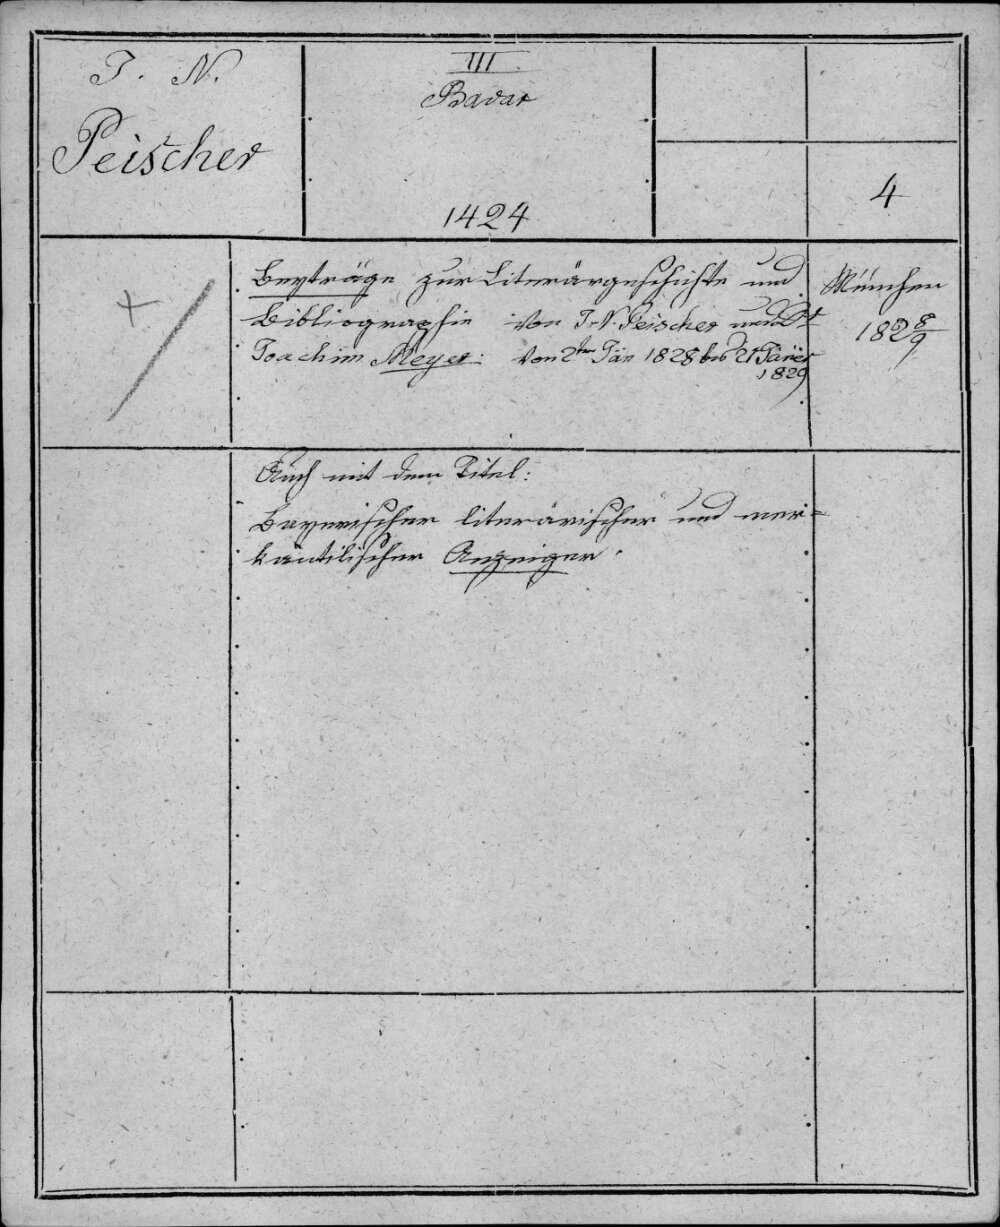 J. N.
Peischer
III
Bavar
1424
4
Beyträge zur Literärgeschichte und
Bibliographie von J. N. Peischer und
Joachim Meyer: Von 2ten Jän 1828 bis 21 Jäner
1829
München
1828/9
Auch mit dem Titel:
Bayerischer literärischer und mer=
kantilischer Anzeiger.